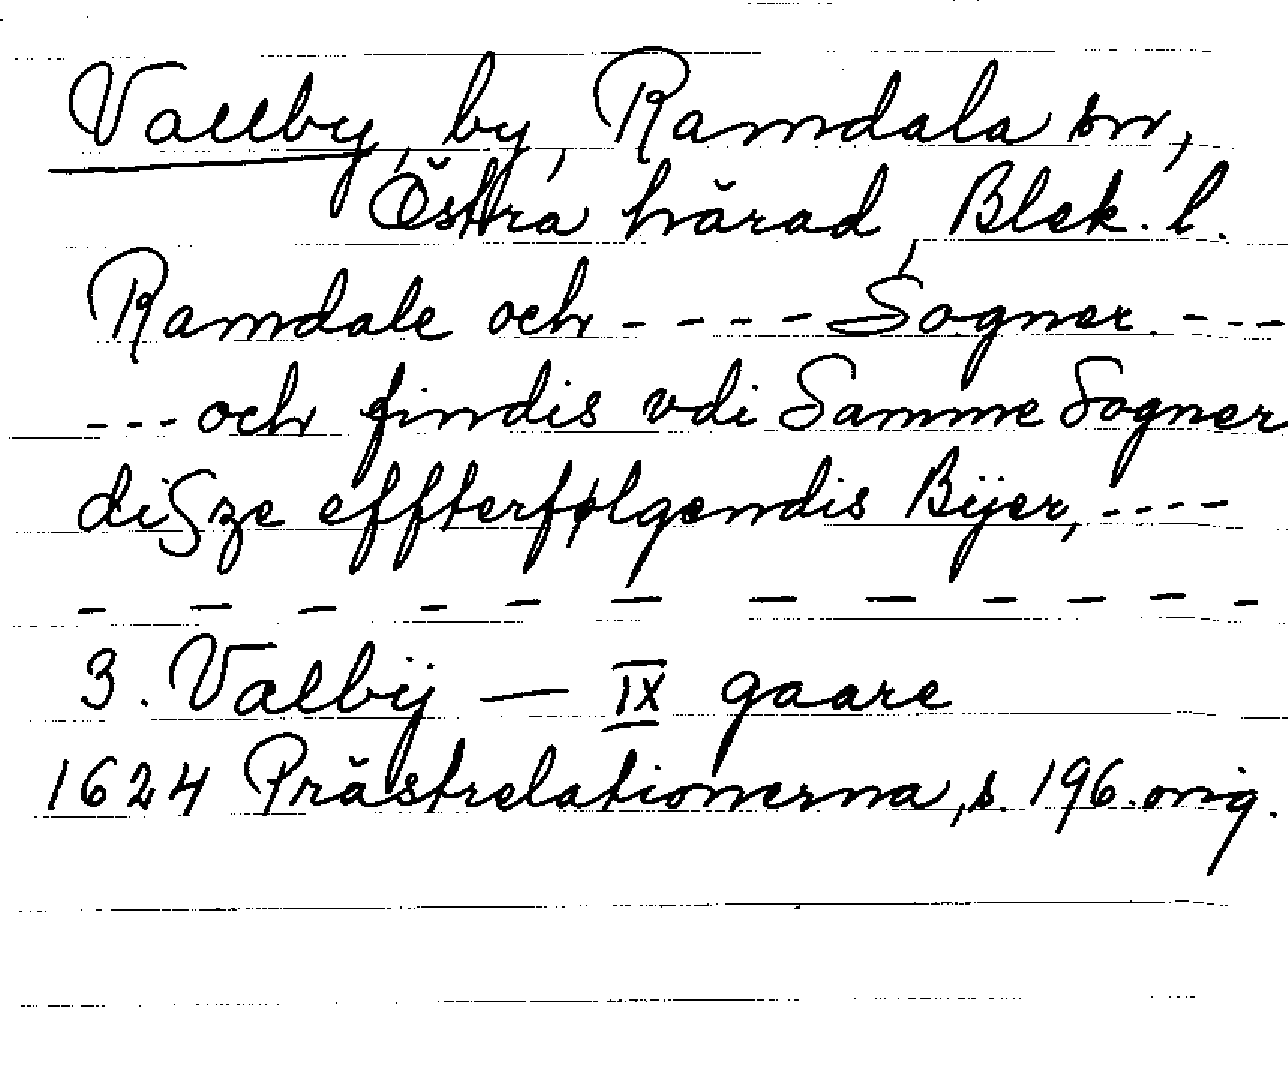 Vallby, by, Ramdala sn,
Östra härad, Blek. l.
Ramdale och - - - - Sogner - - -
- - - och findis vdi Samme Sogner
diSze effterfølgendis Bÿer, - - - -
- - - - - - - - - - - -
3. Valbÿ — IX gaare
1624 Prästrelationerna, s. 196. orig.